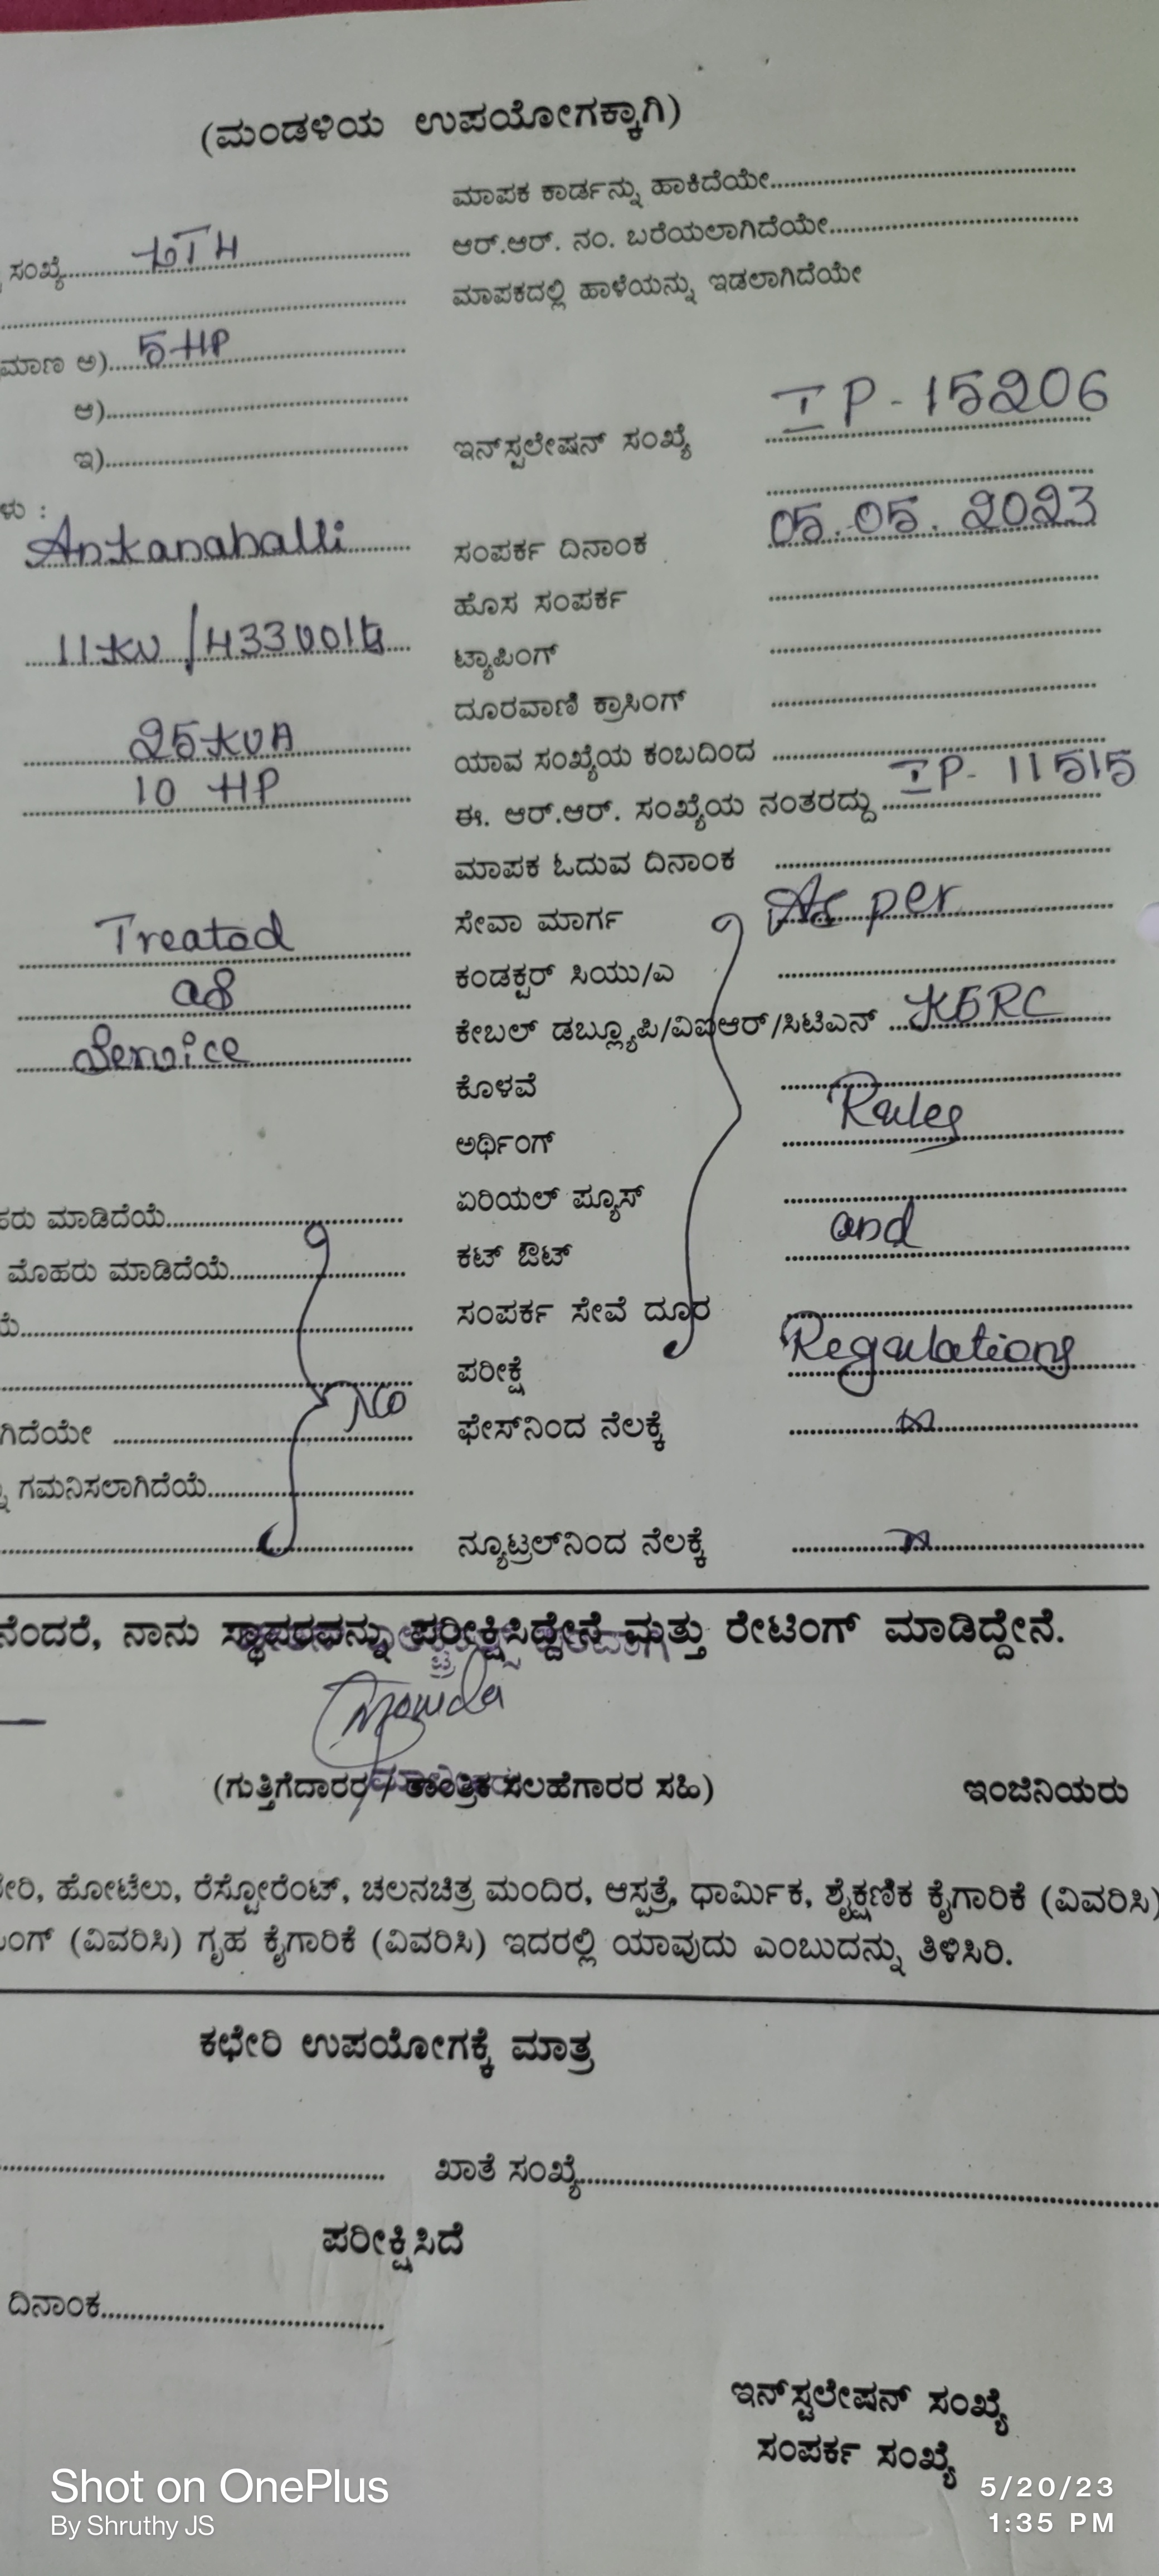 (ಮಂಡಳಿಯ ಉಪಯೋಗಕ್ಕಾಗಿ)
ಮಾಪಕ ಕಾರ್ಡನ್ನು ಹಾಕಿದೆಯೇ
ಸಂಖ್ಯೆ LT4 ಆರ್.ಆರ್. ನಂ. ಬರೆಯಲಾಗಿದೆಯೇ
ಮಾಪಕದಲ್ಲಿ ಹಾಳೆಯನ್ನು ಇಡಲಾಗಿದೆಯೇ
ಮಾಣ ಅ) 5 HP
ಆ)
ಇ) ಇನ್‌ಸ್ಟಲೇಷನ್ ಸಂಖ್ಯೆ IP-15206
ಳು :
Ankanahalli ಸಂಪರ್ಕ ದಿನಾಂಕ 05.05.2023
ಹೊಸ ಸಂಪರ್ಕ
11KV/433Volts ಟ್ಯಾಪಿಂಗ್
ದೂರವಾಣಿ ಕ್ರಾಸಿಂಗ್
25KVA ಯಾವ ಸಂಖ್ಯೆಯ ಕಂಬದಿಂದ
10 HP ಈ. ಆರ್.ಆರ್. ಸಂಖ್ಯೆಯ ನಂತರದ್ದು IP-11515
ಮಾಪಕ ಓದುವ ದಿನಾಂಕ
Treated ಸೇವಾ ಮಾರ್ಗ As per
as ಕಂಡಕ್ಟರ್ ಸಿಯು/ಎ
Service ಕೇಬಲ್ ಡಬ್ಲ್ಯೂಪಿ/ವಿಐಆರ್/ಸಿಟಿಎನ್ KERC
ಕೊಳವೆ
ಅರ್ಥಿಂಗ್ Rules
ಹರು ಮಾಡಿದೆಯೆ ಏರಿಯಲ್ ಪ್ಯೂಸ್
ಮೊಹರು ಮಾಡಿದೆಯೆ ಕಟ್ ಔಟ್ and
ಯೆ ಸಂಪರ್ಕ ಸೇವೆ ದೂರ
ಪರೀಕ್ಷೆ Regulations
ಗಿದೆಯೇ No ಫೇಸ್‌ನಿಂದ ನೆಲಕ್ಕೆ
ಗಮನಿಸಲಾಗಿದೆಯೆ
ನ್ಯೂಟ್ರಲ್‌ನಿಂದ ನೆಲಕ್ಕೆ
ನೆಂದರೆ, ನಾನು ಸ್ಥಾವರವನ್ನು ಪರೀಕ್ಷಿಸಿದ್ದೇನೆ ಮತ್ತು ರೇಟಿಂಗ್ ಮಾಡಿದ್ದೇನೆ.
(ಗುತ್ತಿಗೆದಾರರ / ತಾಂತ್ರಿಕ ಸಲಹೆಗಾರರ ಸಹಿ) ಇಂಜಿನಿಯರು
ೇರಿ, ಹೋಟೆಲು, ರೆಸ್ಟೋರೆಂಟ್, ಚಲನಚಿತ್ರ ಮಂದಿರ, ಆಸ್ಪತ್ರೆ, ಧಾರ್ಮಿಕ, ಶೈಕ್ಷಣಿಕ ಕೈಗಾರಿಕೆ (ವಿವರಿಸಿ)
ಂಗ್ (ವಿವರಿಸಿ) ಗೃಹ ಕೈಗಾರಿಕೆ (ವಿವರಿಸಿ) ಇದರಲ್ಲಿ ಯಾವುದು ಎಂಬುದನ್ನು ತಿಳಿಸಿರಿ.
ಕಛೇರಿ ಉಪಯೋಗಕ್ಕೆ ಮಾತ್ರ
ಖಾತೆ ಸಂಖ್ಯೆ
ಪರೀಕ್ಷಿಸಿದೆ
ದಿನಾಂಕ
ಇನ್‌ಸ್ಟಲೇಷನ್ ಸಂಖ್ಯೆ
ಸಂಪರ್ಕ ಸಂಖ್ಯೆ
Shot on OnePlus
By Shruthy JS
5/20/23
1:35 PM